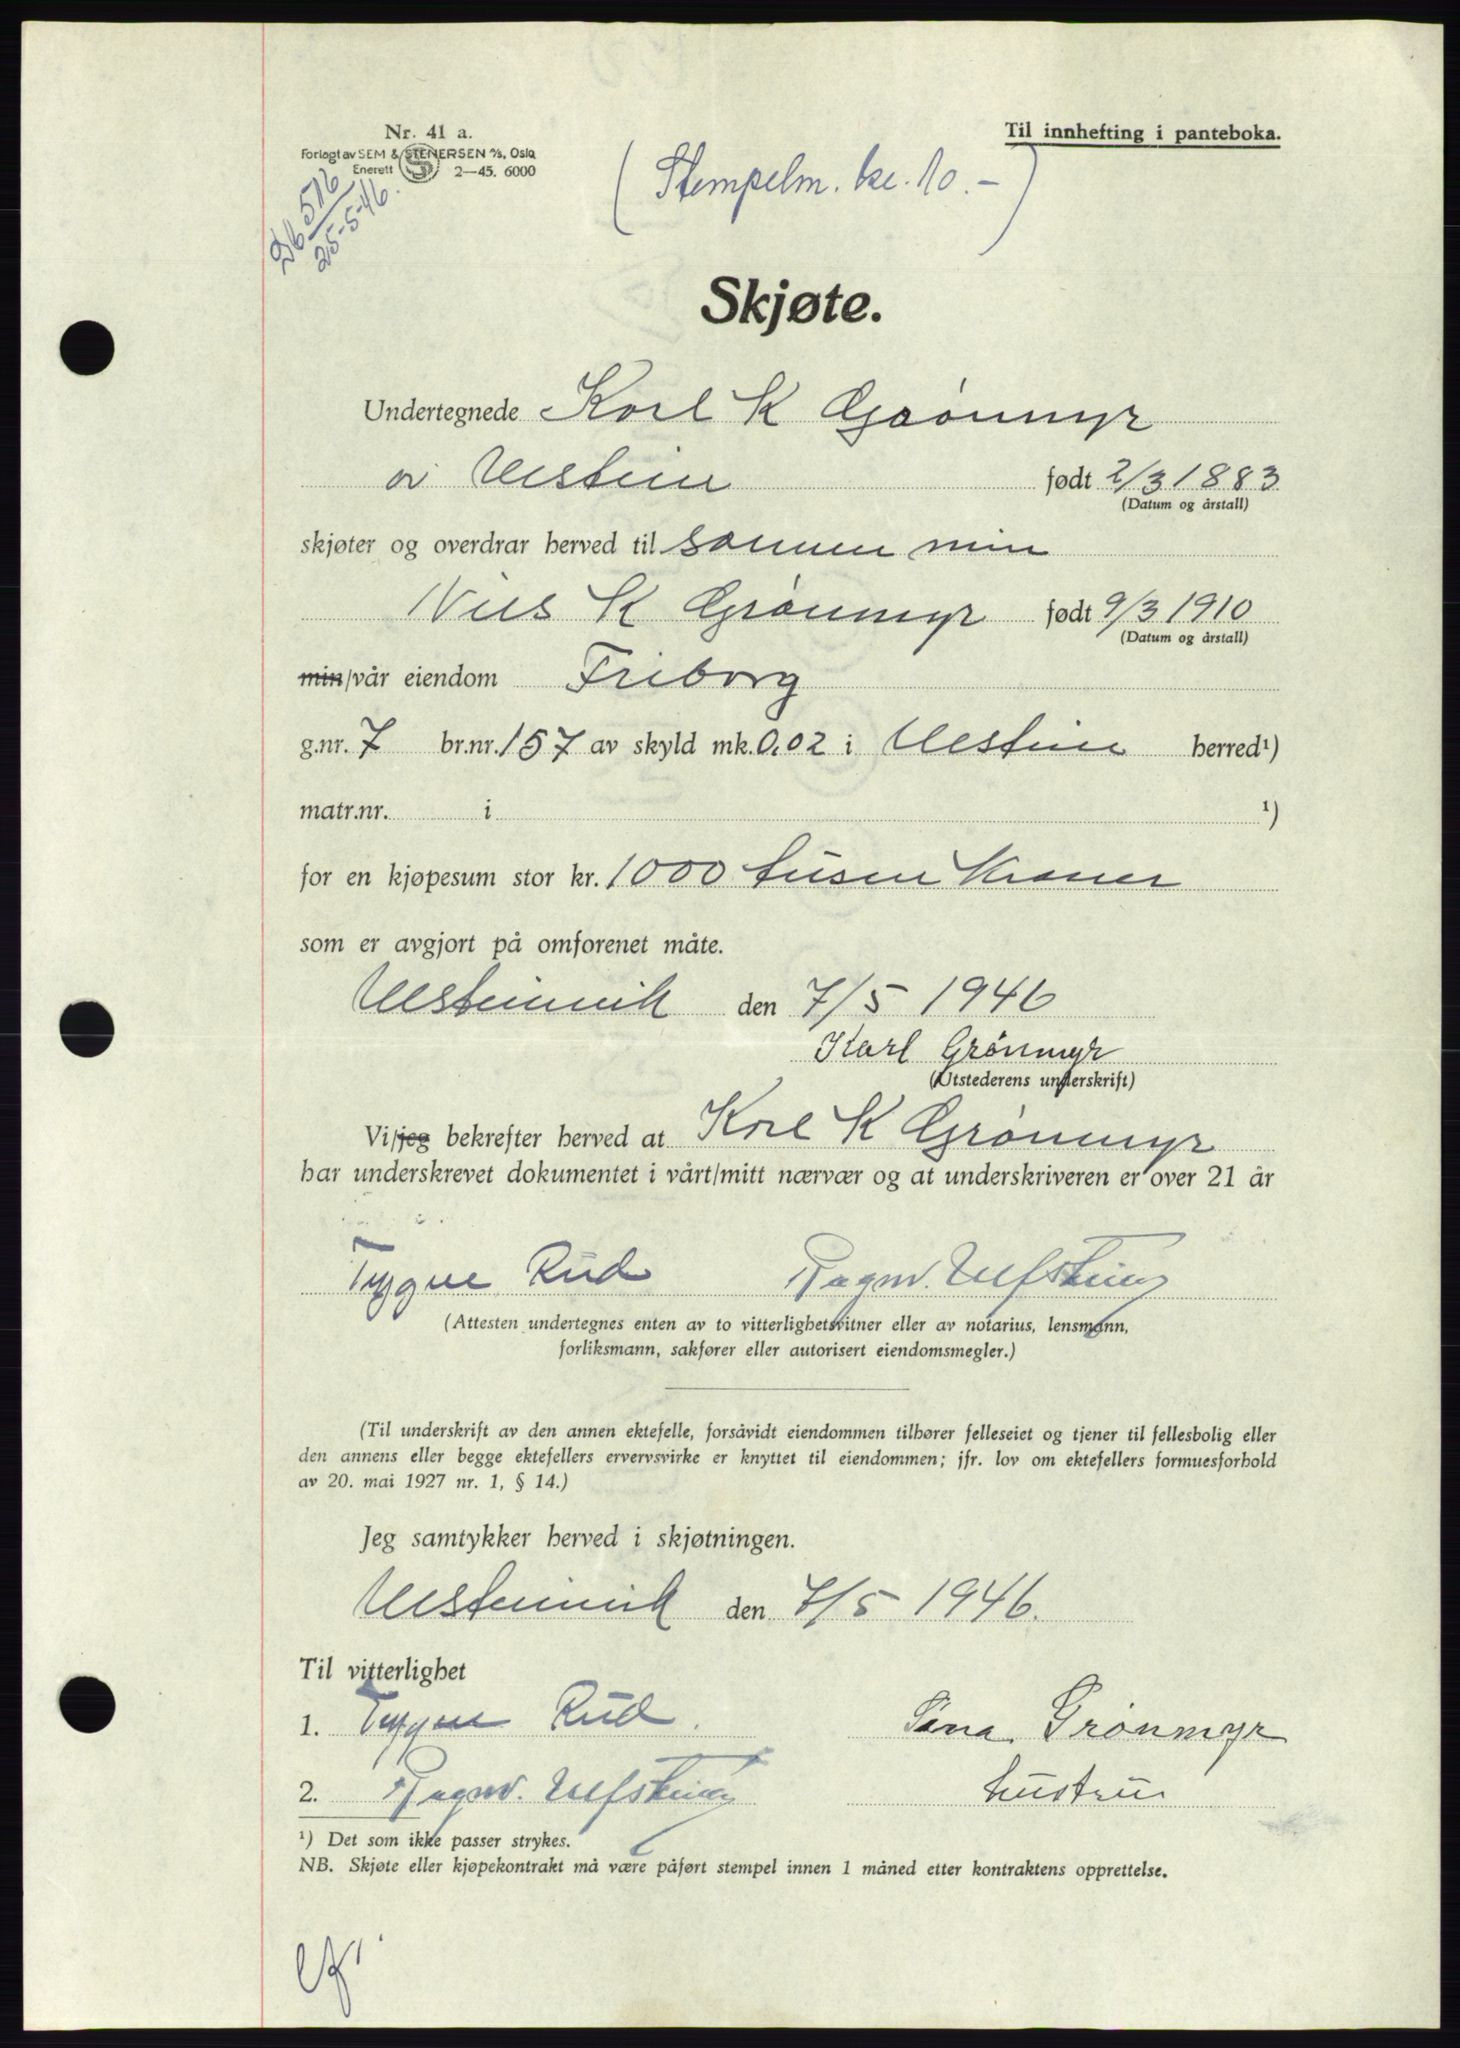 Nr. 41 a.
Forlagt av SEM & STENERSEN A/S, Oslo
Enerett S 2—45. 6000
Til innhefting i panteboka.
(Stempelm. kr. 10.-)
576
25-5-46.
Skjøte.
Undertegnede Karl K Grønmyr
Ulstein født 2/3 1883
(Datum og årstall)
skjøter og overdrar herved til sønnen min
Nils K Grønmyr født 9/3 1910
(Datum og årstall)
min/vår eiendom Friborg
g.nr. 7 br.nr. 157 av skyld mk. 0,02 i Ulstein herred¹)
matr.nr. i ¹)
for en kjøpesum stor kr. 1000 tusen Kroner
som er avgjort på omforenet måte.
Ulsteinvik den 7/5 1946
Karl Grønmyr
(Utstederens underskrift)
Vi/jeg bekrefter herved at Karl K Grønmyr
har underskrevet dokumentet i vårt/mitt nærvær og at underskriveren er over 21 år
Tryggve Rud Ragnv. Ulfstein
(Attesten undertegnes enten av to vitterlighetsvitner eller av notarius, lensmann,
forliksmann, sakfører eller autorisert eiendomsmegler.)
(Til underskrift av den annen ektefelle, forsåvidt eiendommen tilhører felleseiet og tjener til fellesbolig eller
den annens eller begge ektefellers ervervsvirke er knyttet til eiendommen; jfr. lov om ektefellers formuesforhold
av 20. mai 1927 nr. 1, § 14.)
Jeg samtykker herved i skjøtningen.
Ulsteinvik den 7/5 1946.
Til vitterlighet
1. Tryggve Rud. Sina Grønmyr
2. Ragnv. Ulfstein hustru
¹) Det som ikke passer strykes.
NB. Skjøte eller kjøpekontrakt må være påført stempel innen 1 måned etter kontraktens opprettelse.